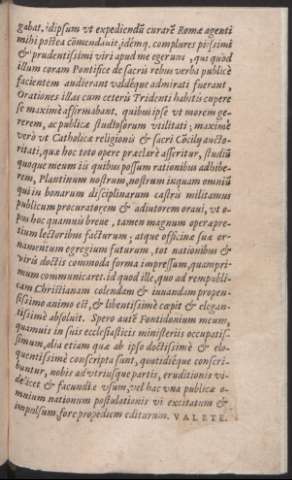 gabat, idipsum vt expediendū curarē Romæ agenti
mihi postea cōmendauit, idémq. complures piissimi
& prudentissimi viri apud me egerunt, qui quòd
illum coram Pontifice de sacris rebus verba publicè
facientem audierant valdéque admirati fuerant,
Orationes illas cum ceteris Tridenti habitis cupere
se maximè affirmabant. quibus ipse vt morem ge-
rerem, ac publicæ studiosorum vtilitati; maximè
verò vt Catholicæ religionis & sacri Cōcilij aucto-
ritati, quæ hoc toto opere præclarè asseritur, studiū
quoque meum iis quibus possum rationibus adhibe-
rem, Plantinum nostrum, nostrum inquam omniū
qui in bonarum disciplinarum castris militamus
publicum procuratorem & adiutorem oraui, vt o-
pus hoc quamuis breue, tamen magnum operæ pre-
tium lectoribus facturum; atque officinæ suæ or-
namentum egregium futurum, tot nationibus &
viris doctis commoda forma impressum, quampri-
mum communicaret. id quod ille, quo ad rempubli-
cam Christianam colendam & iuuandam propen-
sissimo animo est, & libentissimè cœpit & elegan-
tissimè absoluit. Spero autē Fontidonium meum,
quamuis in suis ecclesiasticis ministeriis occupatis-
simum, alia etiam quæ ab ipso doctissimè & elo-
quentissimè conscripta sunt, quotidiéque conscri-
buntur, nobis ad vtriusque partis, eruditionis vi-
delicet & facundiæ vsum, vel hac vna publicæ o-
mnium nationum postulationis vi excitatum &
impulsum, fore propediem editurum. VALETE.